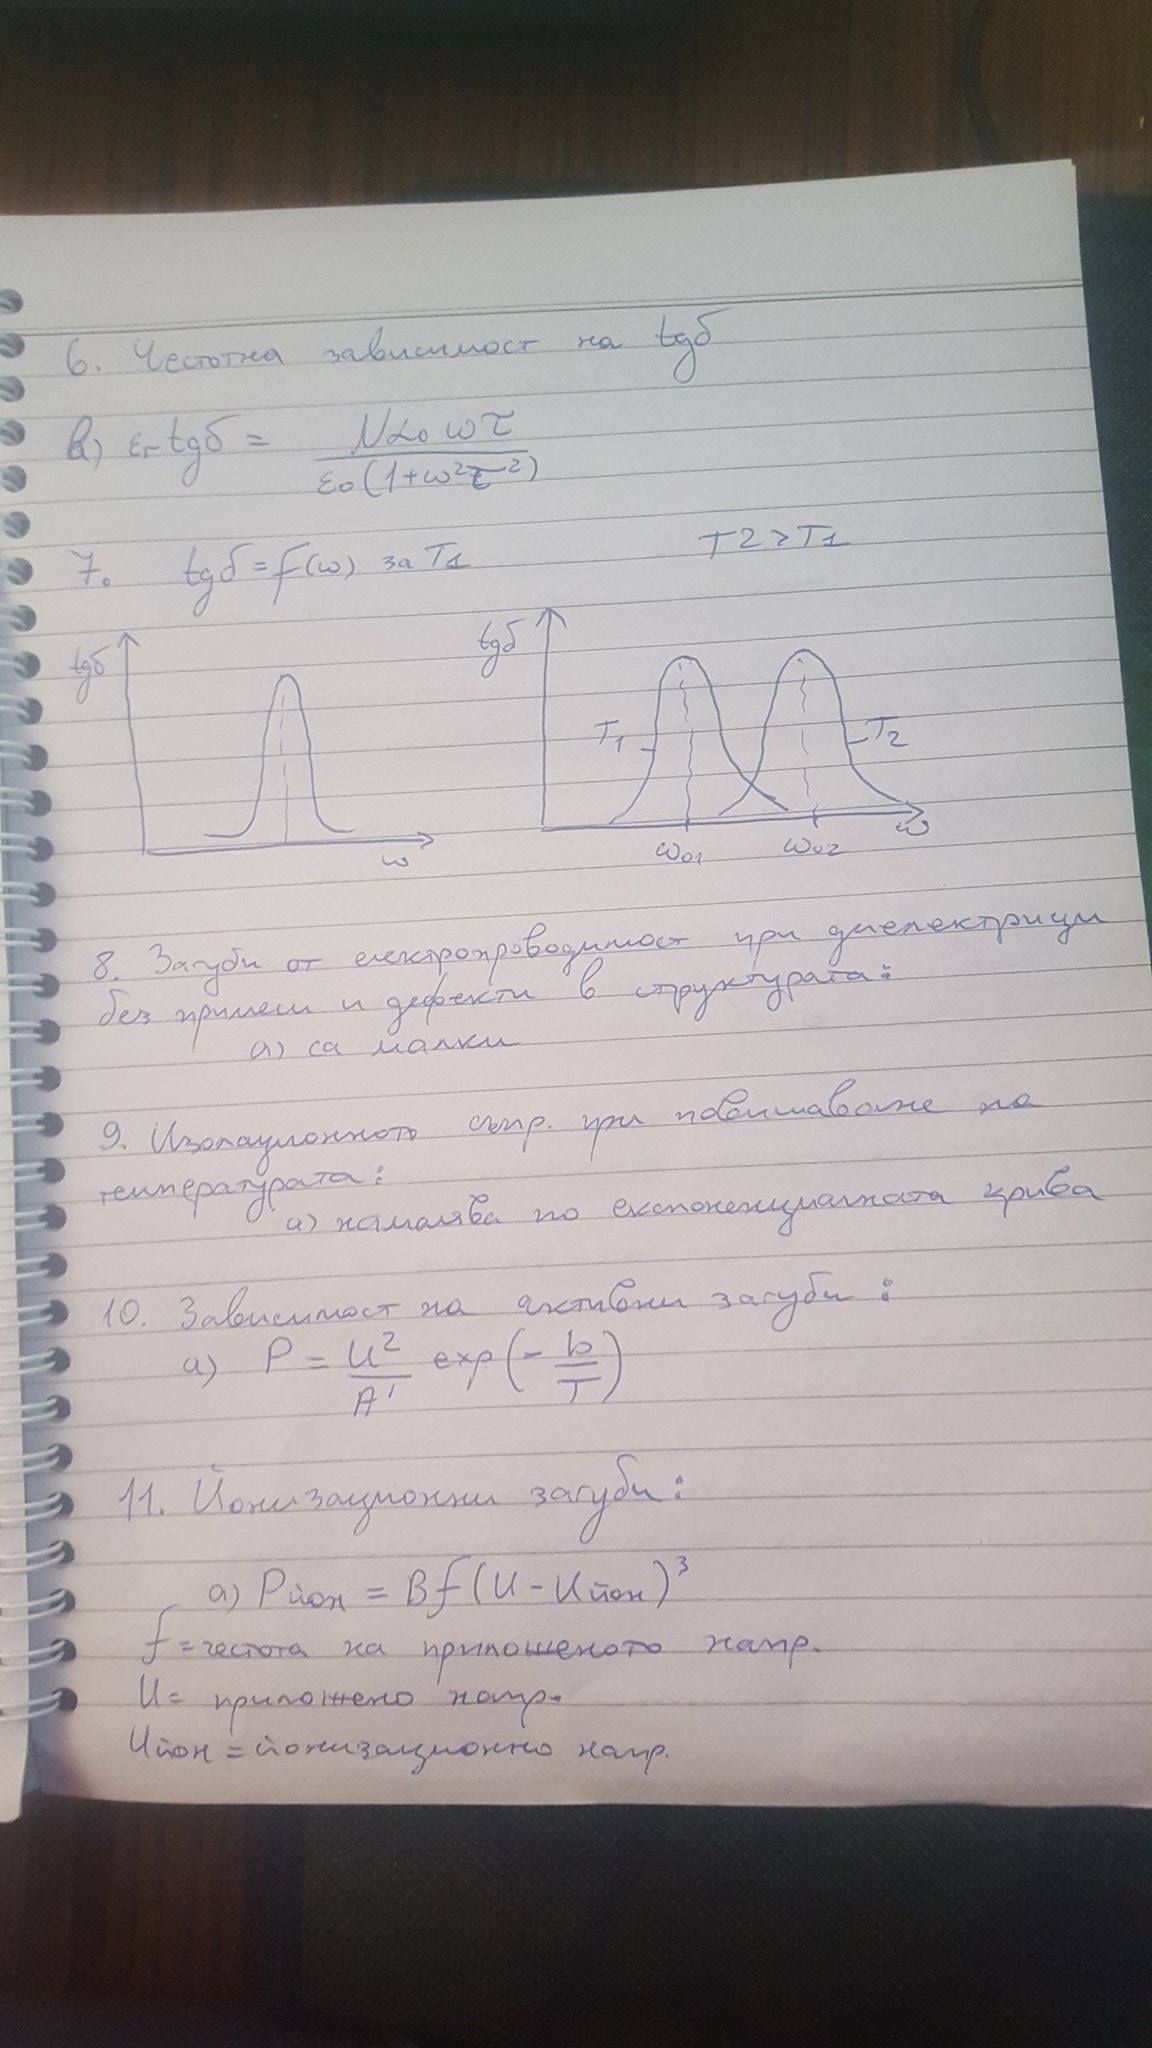 6. Честотна зависимост на tgδ
в) εr tgδ = Nα₀ωτ / ε₀(1+ω²τ²)
7. tgδ = f(ω) за T1 T2 > T1
tgδ tgδ
T1 T2
ω ω01 ω02 ω
8. Загуби от електропроводимост при диелектрици
без примеси и дефекти в структурата:
а) са малки
9. Изолационното съпр. при повишаване на
температурата:
а) намалява по експоненциалната крива
10. Зависимост на активни загуби:
а) P = U²/A' exp(-b/T)
11. Йонизационни загуби:
а) Pйон = Bf(U - Uйон)³
f = честота на приложеното напр.
U = приложено напр.
Uйон = йонизационно напр.